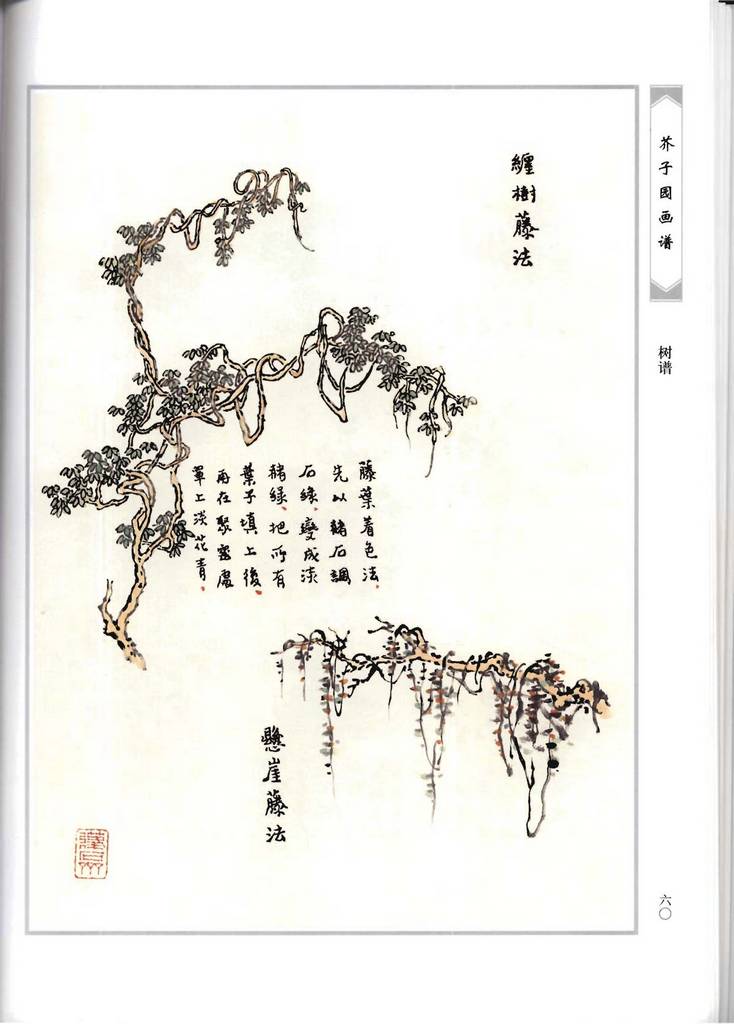 芥子园画谱
树谱
六〇
纏樹藤法
藤葉着色法.
先以赭石調
石綠.變成淡
赭綠.把所有
葉子填上後.
再在聚密處
罩上淡花青.
懸崖藤法